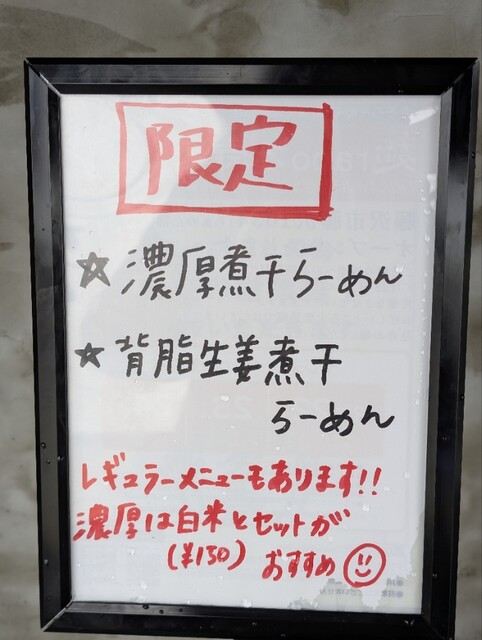 限定
☆濃厚煮干らーめん
☆背脂生姜煮干
らーめん
レギュラーメニューもあります!!
濃厚は白米とセットが
(¥150) おすすめ